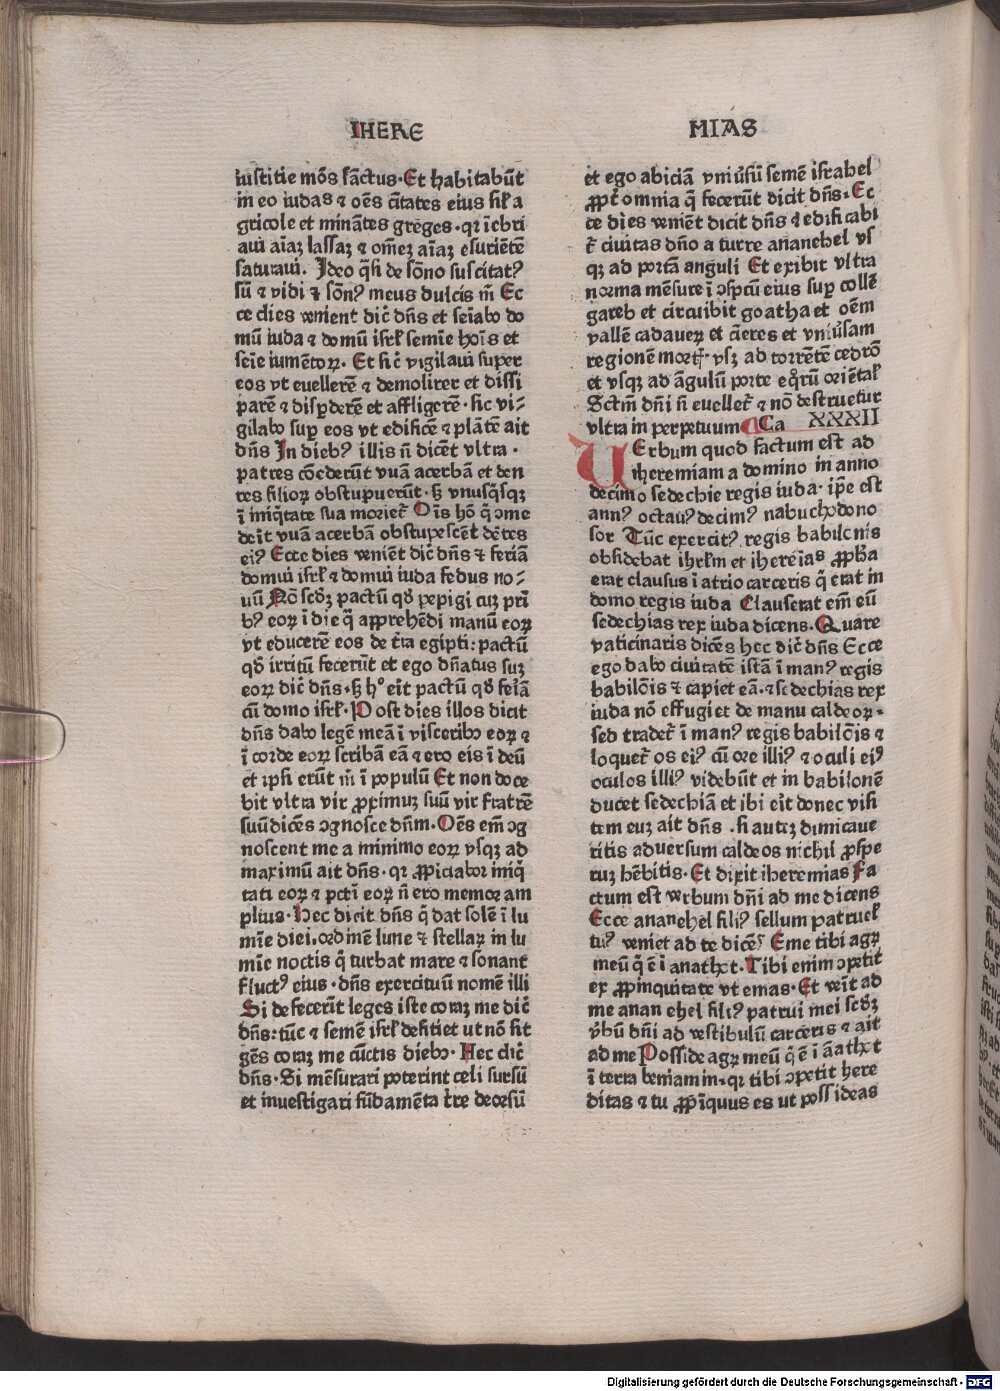 IHERE
MIAS
iustitie mōs sāctus. Et habitabūt
in eo iudas ⁊ oēs cītates eius sil' a
gricole et minātes greges. qꝛ īebri
aui aīaꝫ lassaꝫ ⁊ om̄eꝫ aīaꝫ esuriētē
saturaui. Ideo q̄si de sōno suscitatꝰ
sū ⁊ vidi ⁊ sōnꝰ meus dulcis m̄ Ec
ce dies venient dic̄ dn̄s et seīabo do
mū iuda ⁊ domū isrl' semīe hoīs et
seīe iumētoꝝ. Et sic̄ vigilaui super
eos vt euellerē ⁊ demolirer et dissi
parē ⁊ disꝑderē et affligerē. sic vi⸗
gilabo suꝑ eos vt edificē ⁊ plātē ait
dn̄s In diebꝰ illis n̄ dicēt vltra .
patres cōederūt vuā acerbā et den
tes filioꝝ obstupuerūt. sꝫ vnusq̄sqꝫ
ī iniq̄tate sua moriet᷑ Oīs hō q̄ ꝯme
deīt vuā acerbā obstupescēt dētes
eiꝰ Ecce dies veniēt dic̄ dn̄s ⁊ feriā
domui isrl' ⁊ domui iuda fedus no⸗
uū Nō scd̄ꝫ pactū qd̄ pepigi cuꝫ pr̄i
bꝰ eoꝝ ī die q̄ apprehēdi manū eoꝝ
vt educerē eos de t̄ra egipti: pactū
qd̄ irritū fecerūt et ego dn̄atus suꝫ
eoꝝ dic̄ dn̄s. sꝫ hͦ eīt pactū qd̄ feīā
cū domo isrl'. Post dies illos dicit
dn̄s dabo legē meā ī visceribꝰ eoꝝ ⁊
ī corde eoꝝ scribā eā ⁊ ero eis ī deū
et ipsi erūt m̄ ī populū Et non doce
bit vltra vir ꝓximuꝫ suū vir fratrē
suū dicēs ꝯgnosce dn̄m. Oēs em̄ ꝯg
noscent me a minimo eoꝝ vsqꝫ ad
maximū ait dn̄s. qꝛ ꝓpiciabor iniq̄
tati eoꝝ ⁊ pcti eoꝝ n̄ ero memor am
plius. Hec dicit dn̄s q̄ dat solē ī lu
mīe diei. ordinē lune ⁊ stellaꝝ in lu
mīe noctis q̄ turbat mare ⁊ sonant
fluctꝰ eius . dn̄s exercituū nomē illi
Si defecerīt leges iste coraꝫ me dic̄
dn̄s: tūc ⁊ semē isrl' defitiet ut nō sit
gēs coraꝫ me cūctis diebꝰ. Hec dic̄
dn̄s . Si mēsurari poterint celi sursū
et inuestigari fūdamēta t̄re deorsū
et ego abiciā vniūsū semē israhel
ꝓpt̄ omnia q̄ fecerūt dicit dn̄s. Ec
ce dies veniēt dicit dn̄s ⁊ edificabi
t᷑ ciuitas dn̄o a turre ananehel vs
qꝫ ad portā anguli Et exibit vltra
norma mēsure ī ꝯspcū eius suꝑ collē
gareb et circuibit goatha et oēm
vallē cadaueꝝ et cīeres et vniūsam
regionē moet᷑. vsꝫ ad torrētē cedrō
et vsqꝫ ad āgulū porte eq̄rū oriētal'
Sctm̄ dn̄i n̄ euellet᷑ ⁊ nō destruetur
vltra in perpetuum Ca XXXII
UErbum quod factum est ad
iheremiam a domino in anno
decimo sedechie regis iuda. ip̄e est
annꝰ octauꝰ decimꝰ nabuchodono
sor Tūc exercitꝰ regis babilonis
obsidebat ihrl̄m et ihereīas ꝓph̄a
erat clausus ī atrio carceris q̄ erat in
domo regis iuda Clauserat em̄ eū
sedechias rex iuda dicens. Quare
vaticinaris dicēs hec dic̄ dn̄s Ecce
ego dabo ciuitatē istā ī manꝰ regis
babilōis ⁊ capiet eā. ⁊ sedechias rex
iuda nō effugiet de manu caldeoꝝ.
sed tradet᷑ ī manꝰ regis babilōis ⁊
loquet᷑ os eiꝰ cū ore illiꝰ ⁊ oculi eiꝰ
oculos illiꝰ videbūt et in babilonē
ducet sedechiā et ibi eīt donec visi
tem euꝫ ait dn̄s . si autꝫ dimicaue
ritis aduersum caldeos nichil ꝓspe
ruꝫ hēbitis. Et dixit iheremias Fa
ctum est verbum dn̄i ad me dicens
Ecce ananehel filiꝰ sellum patruel'
tuꝰ veniet ad te dicēs Eme tibi agꝝ
meū q̄ ē ī anathot. Tibi enim ꝯpetit
ex ꝓpinquitate vt emas. Et veīt ad
me ananehel filiꝰ patrui mei scd̄ꝫ
v̄bū dn̄i ad vestibulū carceris ⁊ ait
ad me Posside agꝝ meū q̄ ē ī āathot
ī terra beniamin. qꝛ tibi ꝯpetit here
ditas ⁊ tu ꝓpīquus es ut possideas
Digitalisierung gefördert durch die Deutsche Forschungsgemeinschaft - DFG